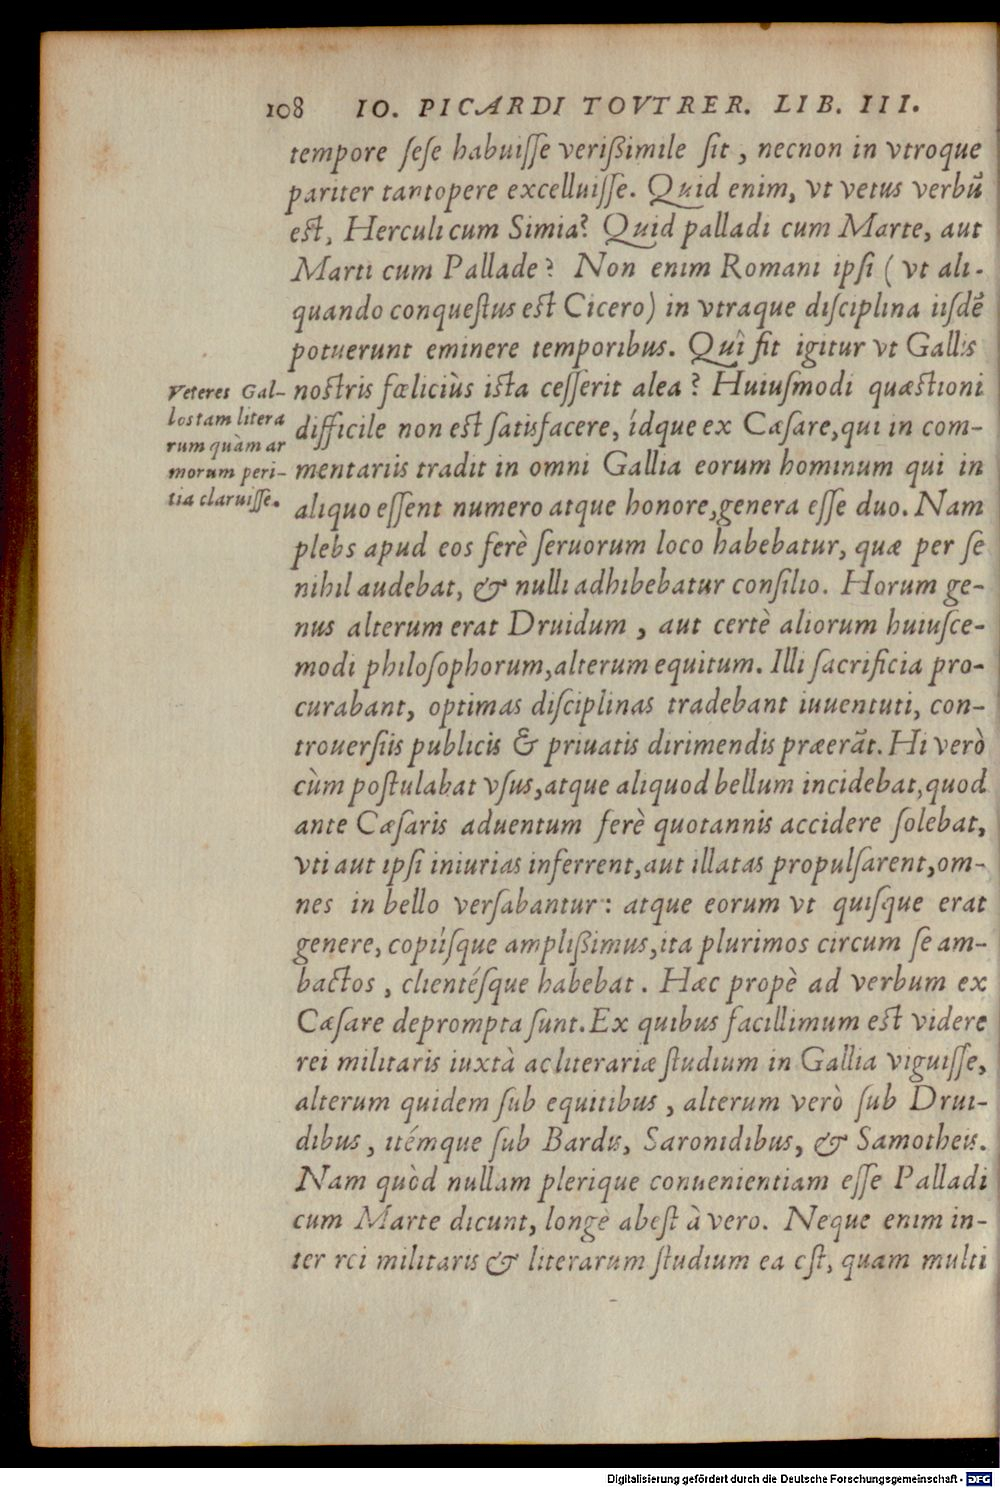 108 IO. PICARDI TOVTRER. LIB. III.
tempore ſeſe habuiſſe verißimile ſit, necnon in vtroque
pariter tantopere excelluiſſe. Quid enim, vt vetus verbũ
est, Herculi cum Simia? Quid palladi cum Marte, aut
Marti cum Pallade? Non enim Romani ipſi (vt ali-
quando conqueſtus est Cicero) in vtraque diſciplina iiſdẽ
potuerunt eminere temporibus. Quî fit igitur vt Gallis
nostris fœliciùs ista ceſſerit alea? Huiuſmodi quæstioni
difficile non est ſatisfacere, ídque ex Cæſare, qui in com-
mentariis tradit in omni Gallia eorum hominum qui in
aliquo eſſent numero atque honore, genera eſſe duo. Nam
plebs apud eos ferè ſeruorum loco habebatur, quæ per ſe
nihil audebat, & nulli adhibebatur conſilio. Horum ge-
nus alterum erat Druidum, aut certè aliorum huiuſce-
modi philoſophorum, alterum equitum. Illi ſacrificia pro-
curabant, optimas diſciplinas tradebant iuuentuti, con-
trouerſiis publicis & priuatis dirimendis præerãt. Hi verò
cùm poſtulabat vſus, atque aliquod bellum incidebat, quod
ante Cæſaris aduentum ferè quotannis accidere ſolebat,
vti aut ipſi iniurias inferrent, aut illatas propulſarent, om-
nes in bello verſabantur: atque eorum vt quiſque erat
genere, copiíſque amplißimus, ita plurimos circum ſe am-
bactos, clientéſque habebat. Hæc propè ad verbum ex
Cæſare deprompta ſunt. Ex quibus facillimum est videre
rei militaris iuxtà ac literariæ ſtudium in Gallia viguiſſe,
alterum quidem ſub equitibus, alterum verò ſub Drui-
dibus, itémque ſub Bardis, Saronidibus, & Samotheis.
Nam quòd nullam plerique conuenientiam eſſe Palladi
cum Marte dicunt, longè abeſt à vero. Neque enim in-
ter rei militaris & literarum ſtudium ea eſt, quam multi
Veteres Gal-
los tam litera
rum quàm ar
morum peri-
tia claruiſſe.
Digitalisierung gefördert durch die Deutsche Forschungsgemeinschaft - DFG